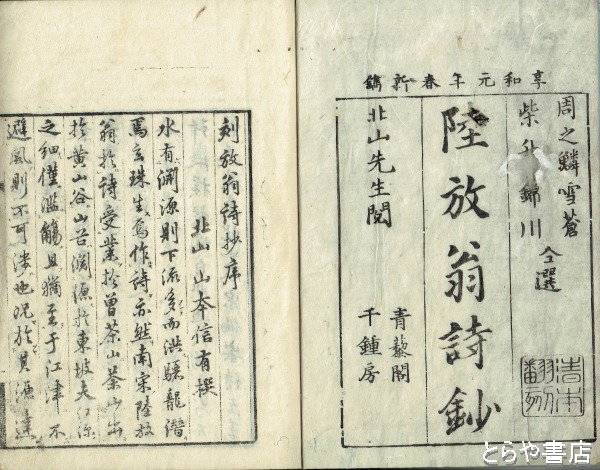 享和元年春新鐫
周之鱗雪蒼
柴升錦川
仝選
陸放翁詩鈔
北山先生閲
青藜閣
千鍾房
清本
翻刻
刻放翁詩抄序
北山山本信有撰
水有淵源則下流多而洪驪龍潛
焉玄珠生焉作詩亦然南宋陸放
翁於詩受業於曾茶山茶山出
於黄山谷山谷淵源於東坡夫江源
之細僅濫觴且猶至于江津不
避風則不可渉也況於其源遠
とらや書店